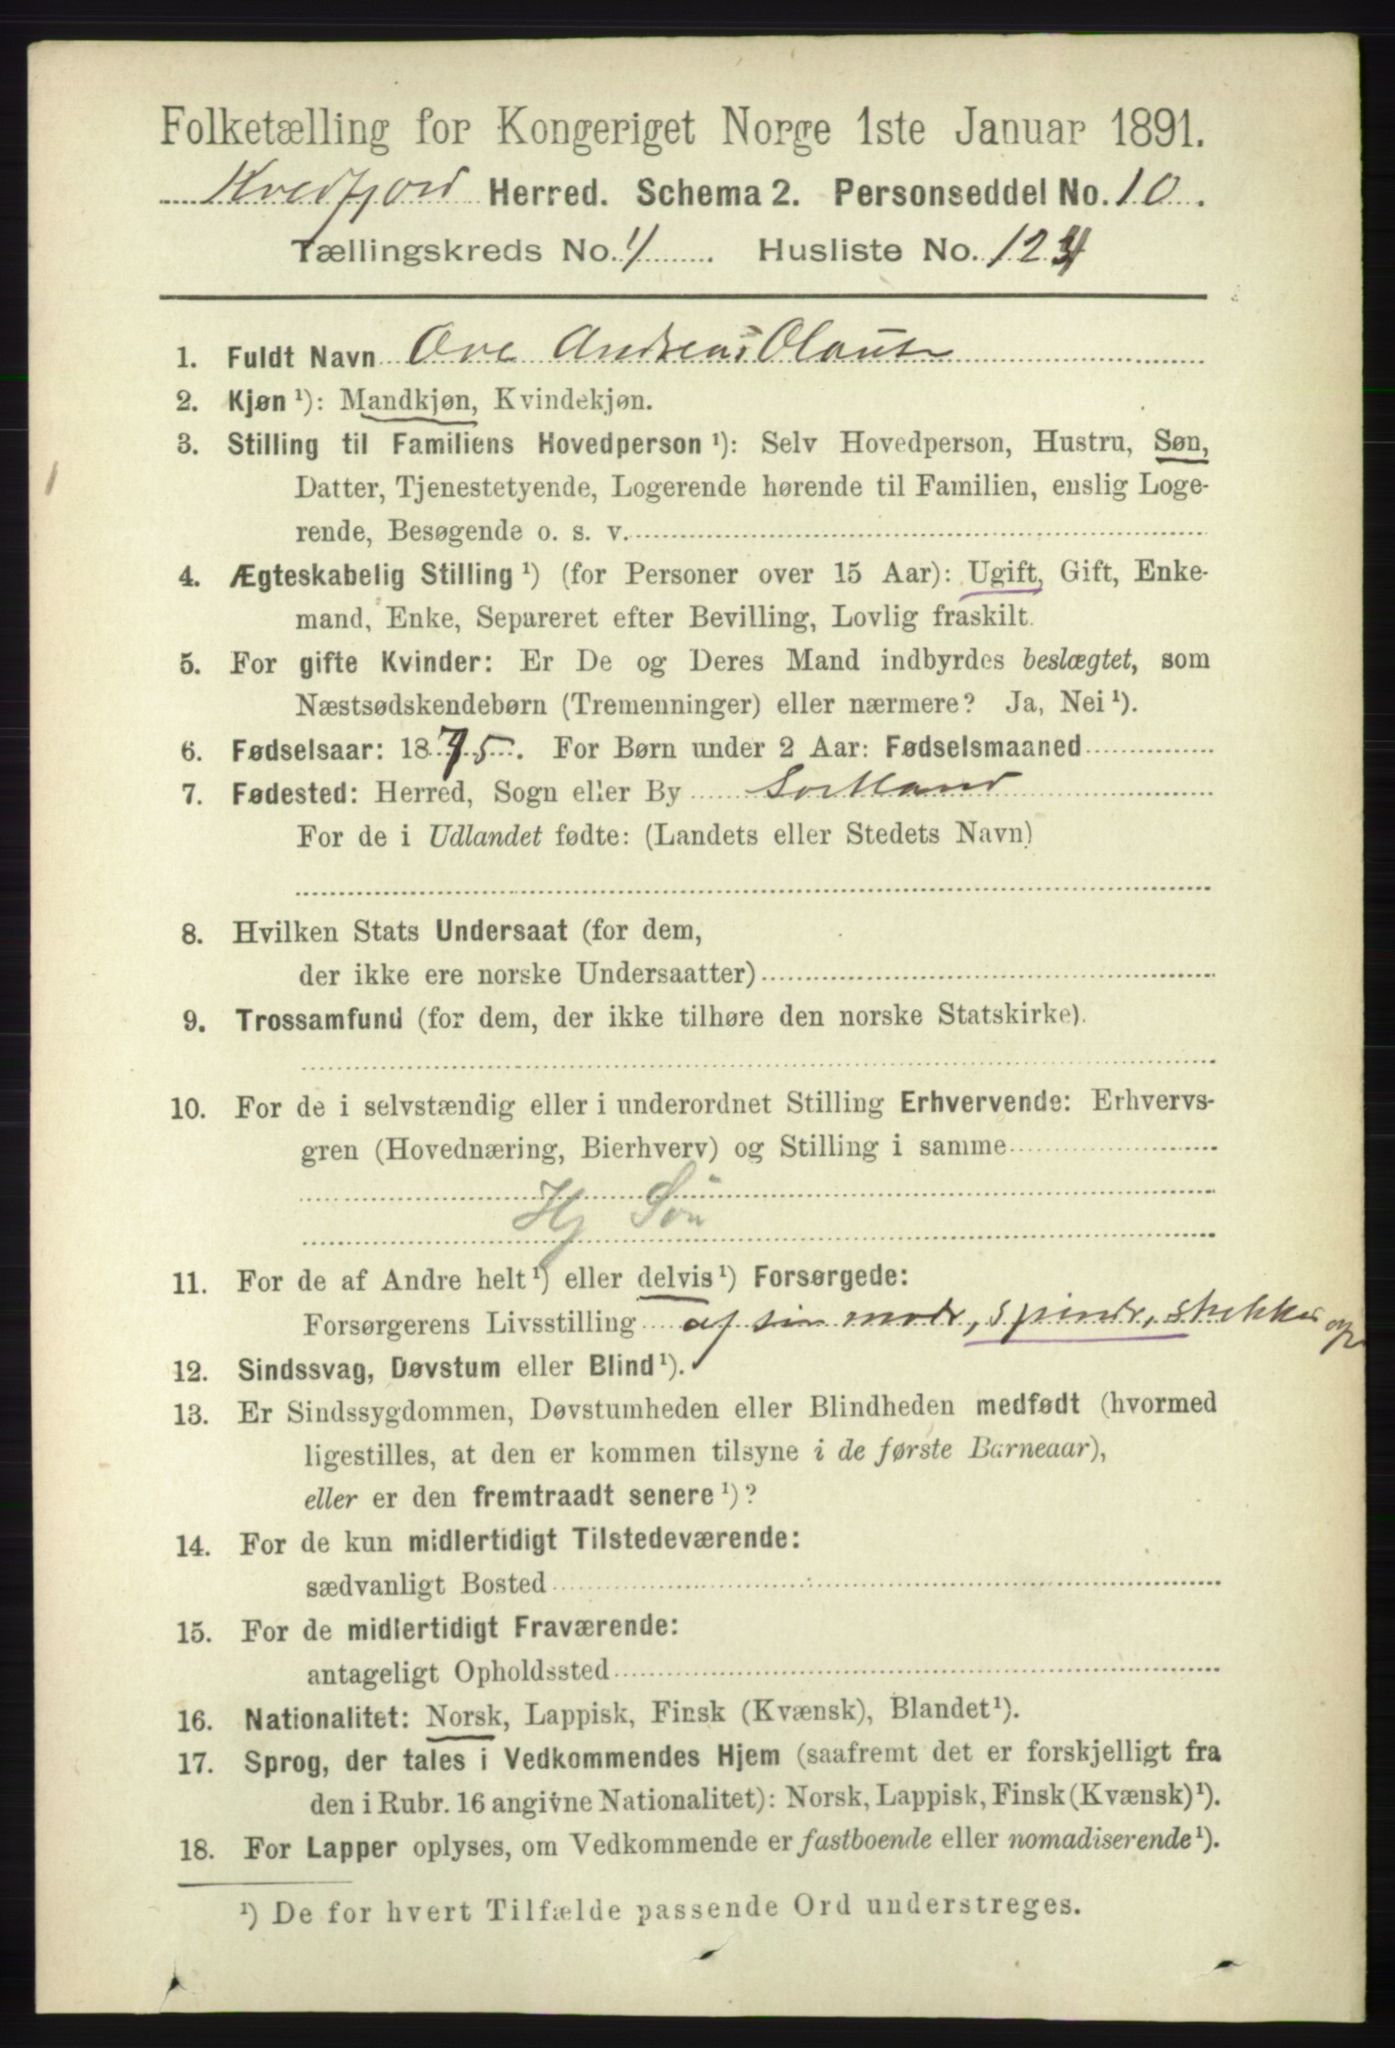 Folketælling for Kongeriget Norge 1ste Januar 1891.
Kvedfjord Herred. Schema 2. Personseddel No. 10.
Tællingskreds No. 4. Husliste No. 124
1. Fuldt Navn Ove Andreas Olausen
2. Kjøn ¹): Mandkjøn, Kvindekjøn.
3. Stilling til Familiens Hovedperson ¹): Selv Hovedperson, Hustru, Søn,
Datter, Tjenestetyende, Logerende hørende til Familien, enslig Loge-
rende, Besøgende o. s. v.
4. Ægteskabelig Stilling ¹) (for Personer over 15 Aar): Ugift, Gift, Enke-
mand, Enke, Separeret efter Bevilling, Lovlig fraskilt.
5. For gifte Kvinder: Er De og Deres Mand indbyrdes beslægtet, som
Næstsødskendebørn (Tremenninger) eller nærmere? Ja, Nei ¹).
6. Fødselsaar: 1875. For Børn under 2 Aar: Fødselsmaaned
7. Fødested: Herred, Sogn eller By Sortland
For de i Udlandet fødte: (Landets eller Stedets Navn)
8. Hvilken Stats Undersaat (for dem,
der ikke ere norske Undersaatter)
9. Trossamfund (for dem, der ikke tilhøre den norske Statskirke).
10. For de i selvstændig eller i underordnet Stilling Erhvervende: Erhvervs-
gren (Hovednæring, Bierhverv) og Stilling i samme
Hj Søn
11. For de af Andre helt ¹) eller delvis ¹) Forsørgede:
Forsørgerens Livsstilling af sin moder, spinder, strikker op
12. Sindssvag, Døvstum eller Blind ¹).
13. Er Sindssygdommen, Døvstumheden eller Blindheden medfødt (hvormed
ligestilles, at den er kommen tilsyne i de første Barneaar),
eller er den fremtraadt senere ¹)?
14. For de kun midlertidigt Tilstedeværende:
sædvanligt Bosted
15. For de midlertidigt Fraværende:
antageligt Opholdssted
16. Nationalitet: Norsk, Lappisk, Finsk (Kvænsk), Blandet ¹).
17. Sprog, der tales i Vedkommendes Hjem (saafremt det er forskjelligt fra
den i Rubr. 16 angivne Nationalitet): Norsk, Lappisk, Finsk (Kvænsk) ¹).
18. For Lapper oplyses, om Vedkommende er fastboende eller nomadiserende ¹).
¹) De for hvert Tilfælde passende Ord understreges.